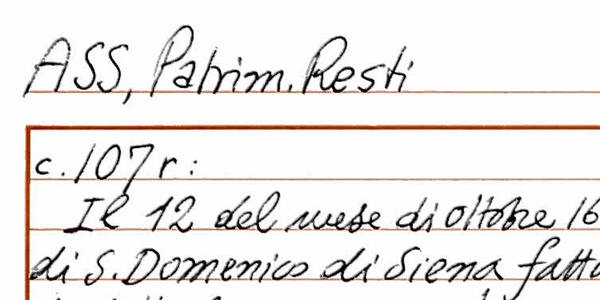 ASS, Patrim. Resti
c. 107 r:
Il 12 del mese di ottobre 16
di S. Domenico di Siena fatto